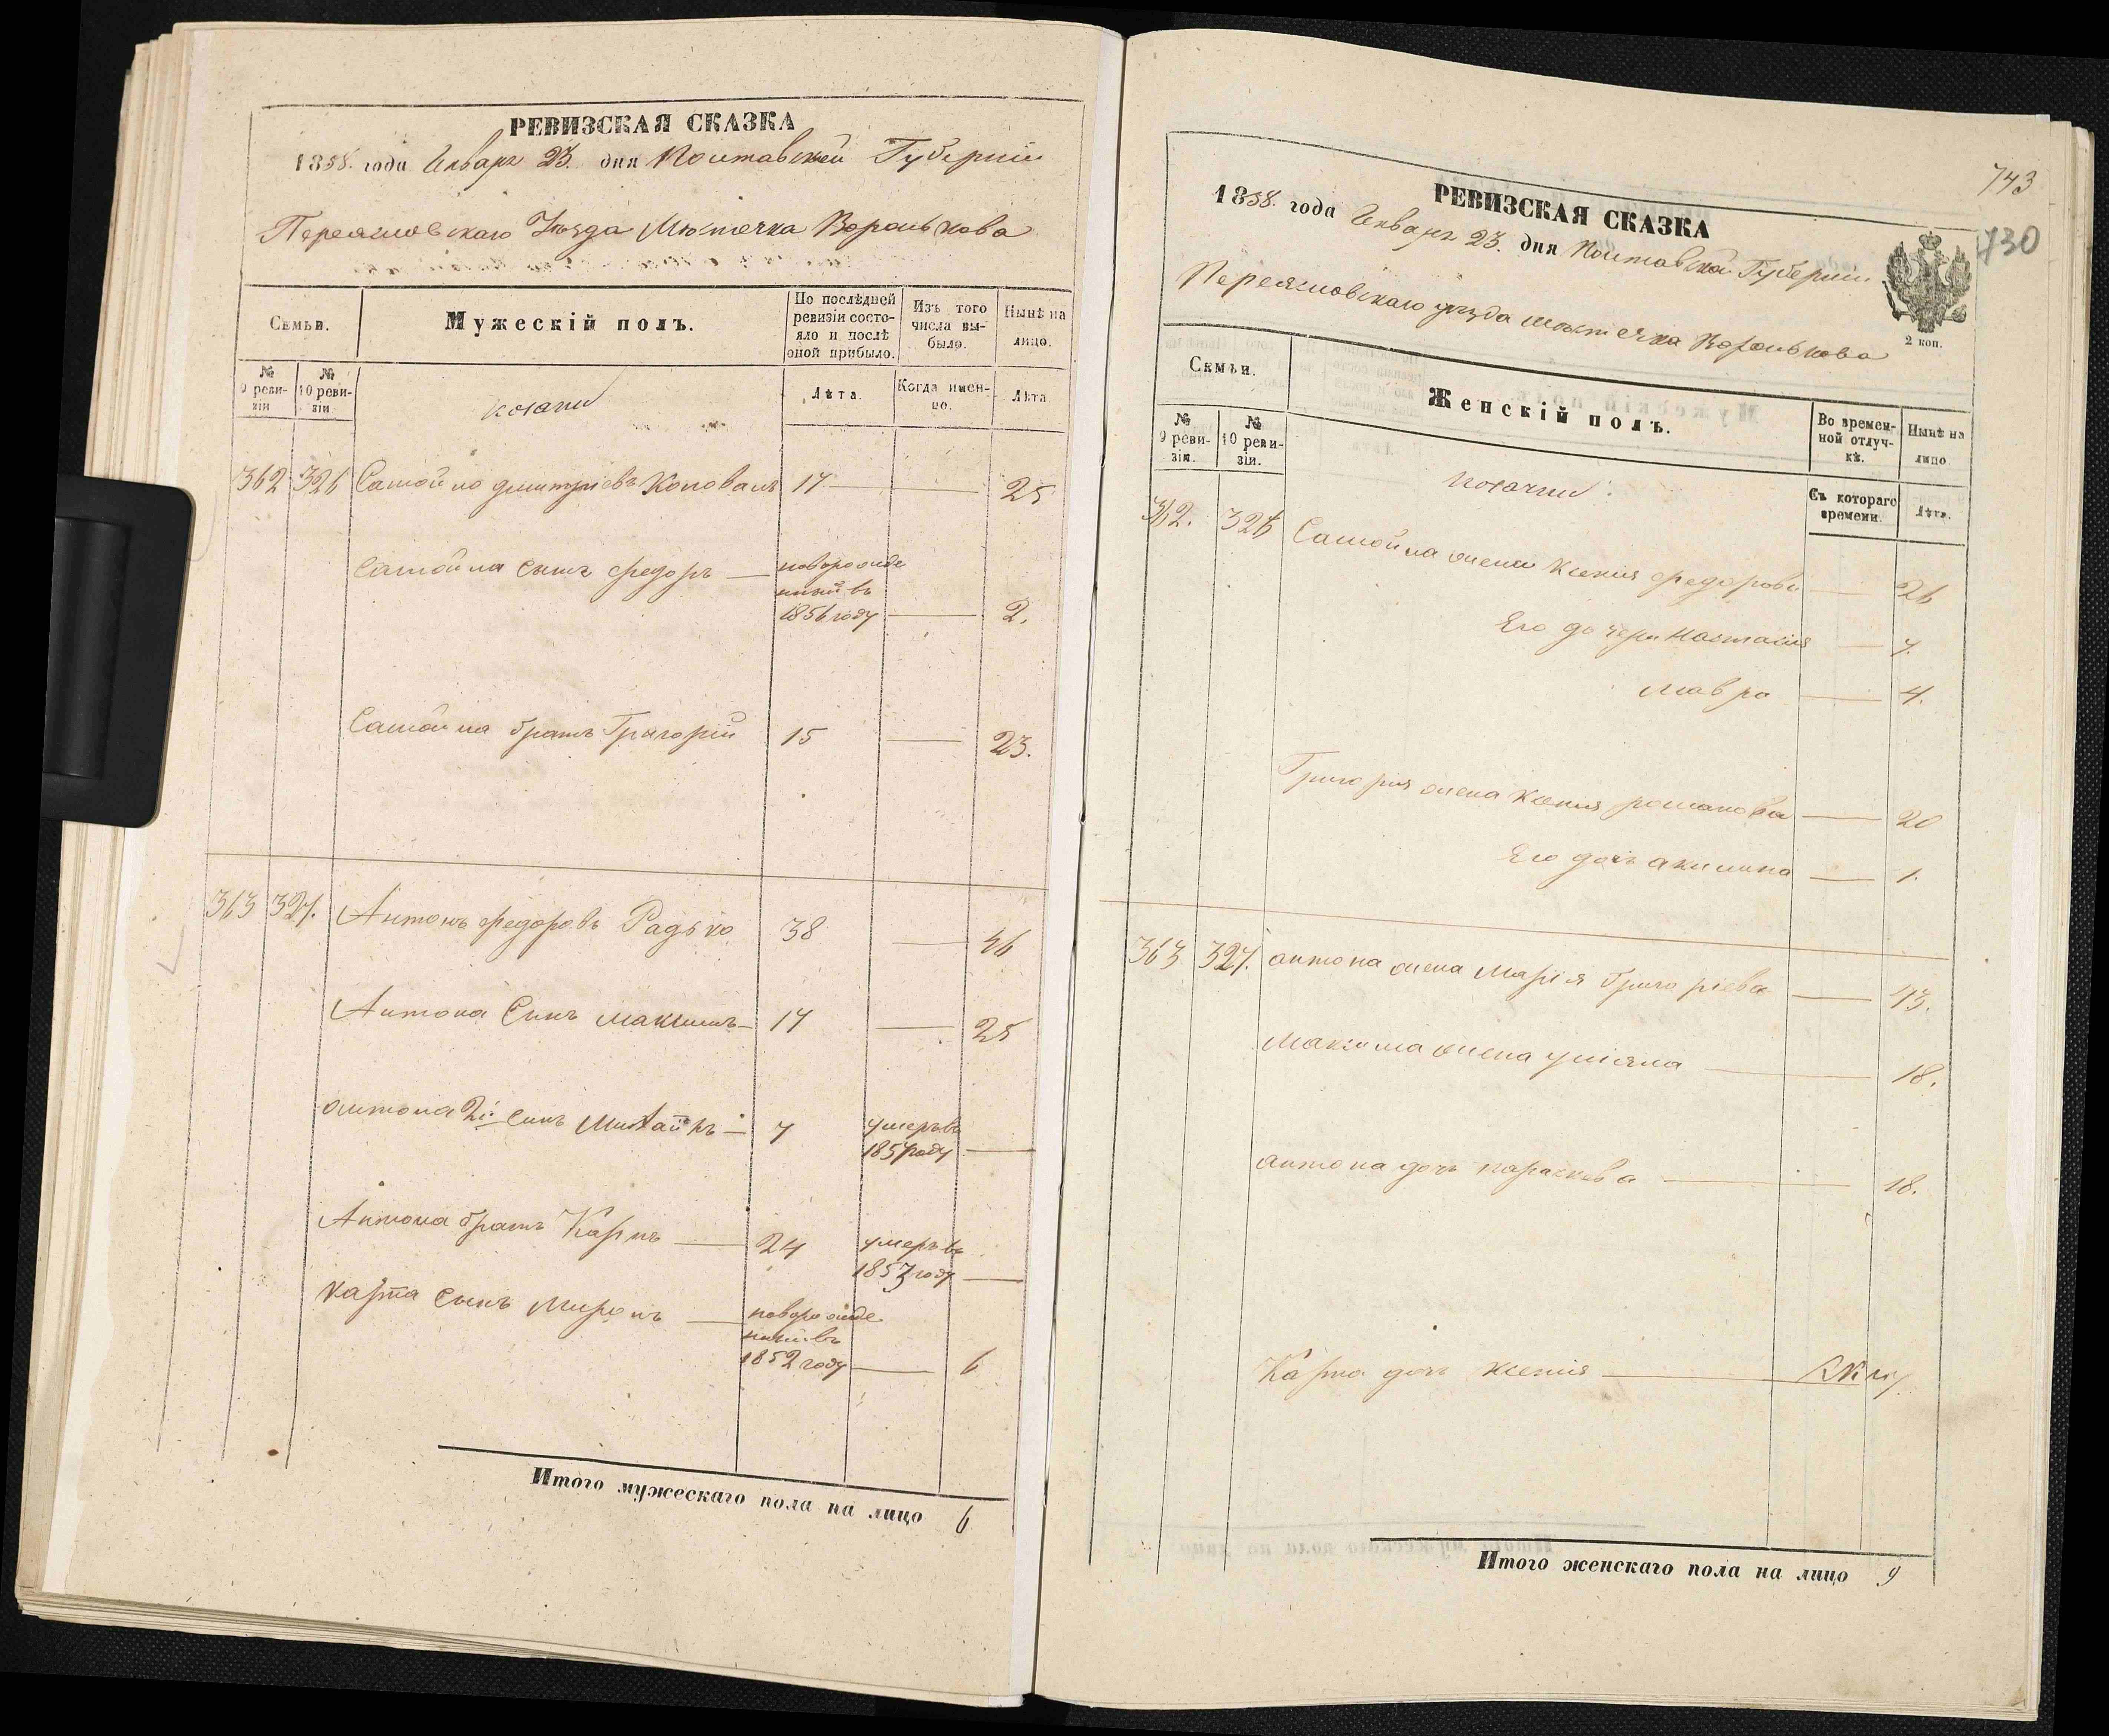 РЕВИЗСКАЯ СКАЗКА
1858. года Января 23. дня Полтавской Губерніи
Переяславскаго Уѣзда Мѣстечка Воронькова
Семьи.
Мужескій полъ.
По послѣдней ревизіи состояло и послѣ оной прибыло.
Изъ того числа выбыло.
Нынѣ на лицо.
№ 9 ревизіи
№ 10 ревизіи
козаки
Лѣта.
Когда именно.
Лѣта
362 326 Самойло Дмитріевъ Коновалъ 17 — 25
Самойла сынъ Федоръ — новорожденный въ 1856 году — 2.
Самойла братъ Григорій 15 — 23.
363 327. Антонъ Федоровъ Радько 38 — 46
Антона Сынъ Максимъ — 17 — 25
Антона 2й сынъ Михайлъ — 7 умеръ въ 1857 году —
Антона братъ Карпъ — 24 умеръ въ 1857 году —
Карпа сынъ Миронъ — новорожденный въ 1852 году — 6
Итого мужескаго пола на лицо 6
743
730
РЕВИЗСКАЯ СКАЗКА
1858. года Января 23. дня Полтавской Губерніи
Переяславскаго уѣзда мѣстечка Воронькова
2 коп.
Семьи.
Женскій полъ.
Во временной отлучкѣ.
Нынѣ на лицо
№ 9 ревизіи.
№ 10 ревизіи.
козачки.
Съ котораго времени.
Лѣта.
362. 326 Самойла жена Ксенія Федорова — 26
Его дочери Настасія — 7.
Мавра — 4.
Григорія жена Ксенія Романова — 20
Его дочь Акилина — 1.
363 327. Антона жена Марія Григоріева — 43.
Максима жена Уліяна — 18.
Антона дочь Параскева — 18.
Карпа дочь Ксенія —
Итого женскаго пола на лицо 9